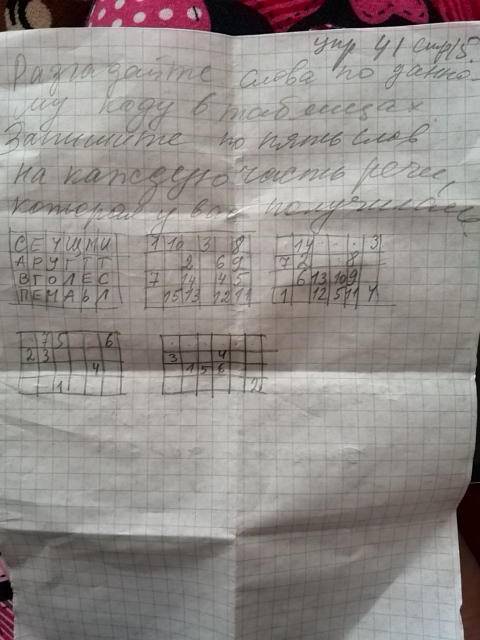 упр 41 стр 15.
Разгадайте слова по данно-
му коду в таблицах.
Запишите по пять слов
на каждую часть речи,
которая у вас получилась
С Е Ч Щ М И
А Р У Г Т Т
В Г О Л Е С
П Е Н А Ь Л
1 10 3 8
2 6 9
7 14 4 5
15 13 12 11
. 14 . . . 3
7 2 . 8 .
6 13 10 9
1 12 5 11 4
. 7 5 . . 6
2 3
4
1
. . . . . .
3 4
1 5 6
2